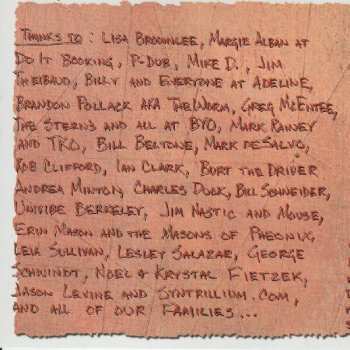 THANKS TO: LISA BROWNLEE, MARGIE ALBAN AT
DO IT BOOKING, P-DUB, MIKE D., JIM
THEIBAUD, BILLY AND EVERYONE AT ADELINE,
BRANDON POLLACK AKA THEWORM, GREG McENTEE,
THE STERNS AND ALL AT BYO, MARK RAINEY
AND TKO, BILL BELTONE, MARK DESALVO,
ROB CLIFFORD, IAN CLARK, BURT THE DRIVER
ANDREA MINTON, CHARLES DOOK, BILL SCHNEIDER,
UNIVIBE BERKELEY, JIM NASTIC AND MOUSE,
ERIN MASON AND THE MASONS OF PHEONIX,
LEIA SULLIVAN, LESLEY SALAZAR, GEORGE
SCHWINDT, NOEL & KRYSTAL FIETZEK,
JASON LEVINE AND SYNTRILLIUM.COM,
AND ALL OF OUR FAMILIES...